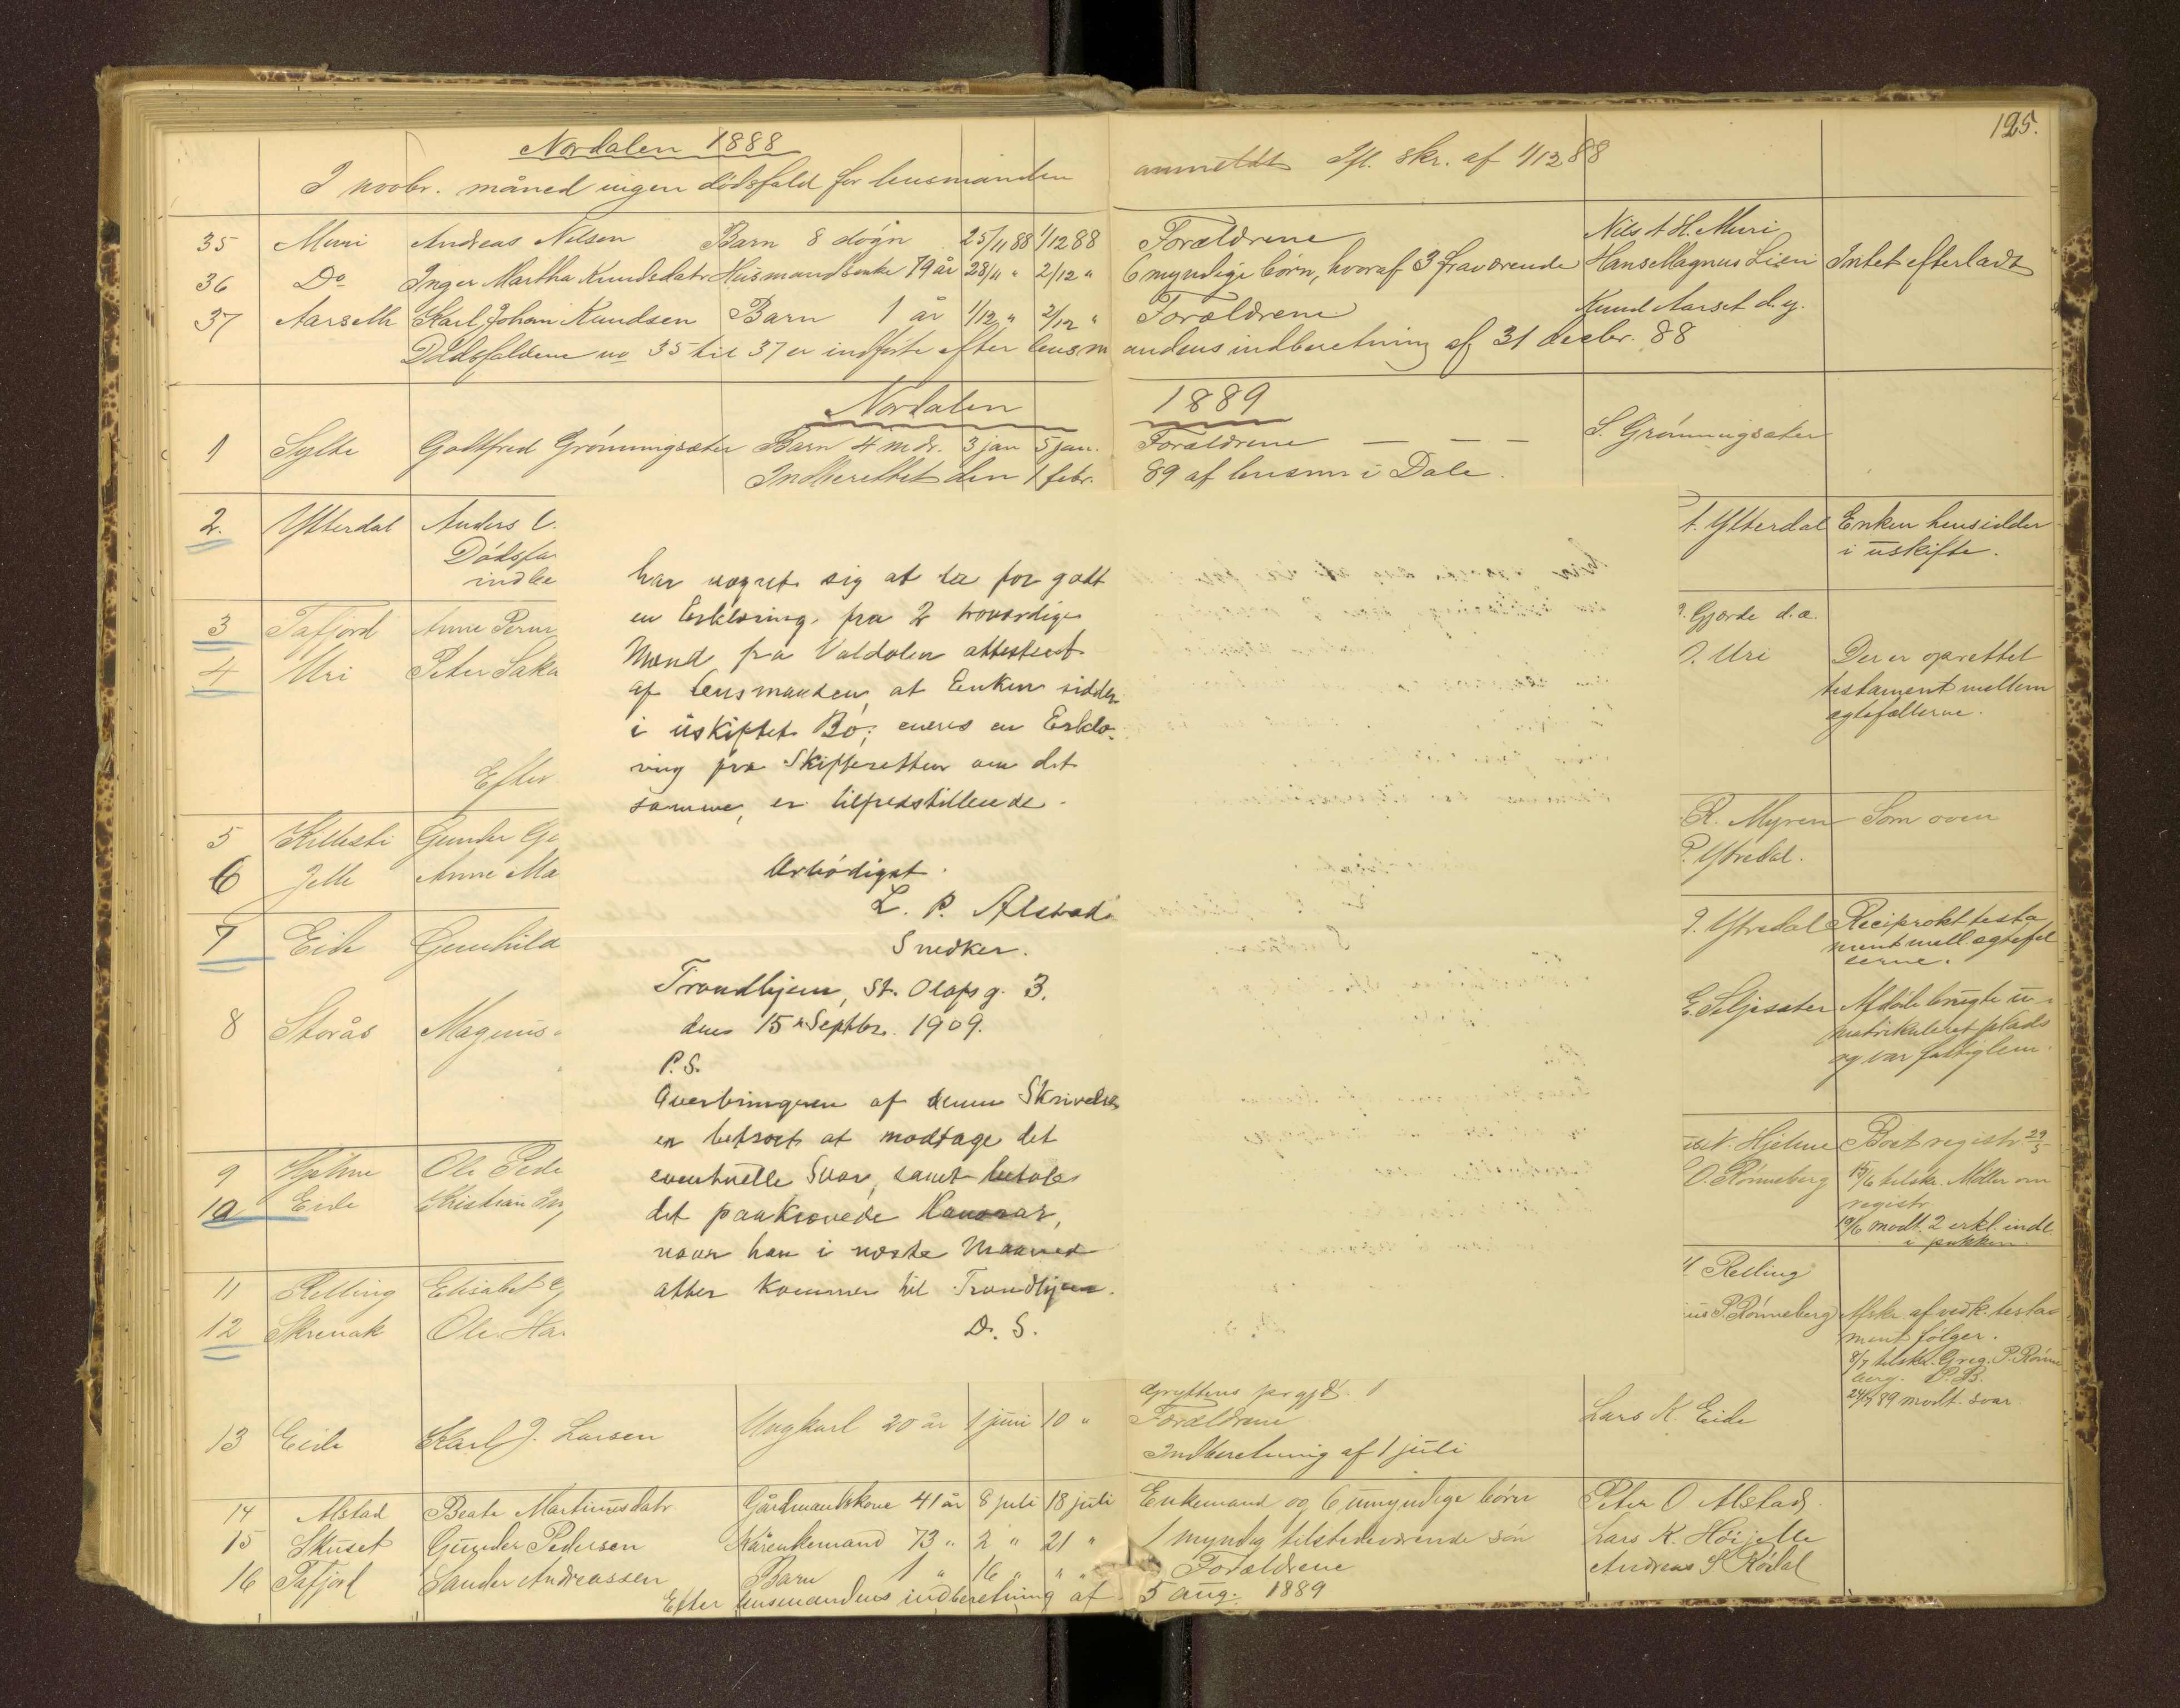 125.
Nordalen 1888
I novbr. måned ingen dödsfald for lensmanden anmeldt Ifl. skr. af 1/12 88
35 Muri Andreas Nilsen Barn 8 døgn 25/11 88 1/12 88 Forældrene Nils A H. Muri
36 Do Inger Martha Knudsdatr Husmandsenke 79 år 28/11 " 2/12 " 6 myndige børn, hvoraf 3 fraværende Hans Magnus Lien Intet efterladt
37 Aarseth Karl Johan Knudsen Barn 1 år 1/12 " 2/12 " Forældrene Knud Aarset d.y.
Dödsfaldene no 35 til 37 er indførte efter lensmandens indberetning af 31 decbr. 88
Nordalen 1889
1 Sylte Gottfred Grønningsæter Barn 4 mdr. 3 jan 5 jan. Forældrene — — — S. Grønningsæter
Indberettet den 1 febr. 89 af lensm i Dale.
2. Ytterdal Anders
t. Ytterdal Enken hensidder
i uskifte.
Dödsfa
indbe
3 Tafjord Anne Pern
Gjærde d.æ.
4 Uri Peter Saka
O. Uri Der er oprettet
testament mellem
ægtefællerne.
Efter
5 Killesti Gunder Gu
R. Myren Som oven
6 Jelle Anne Ma
P. Ytredal.
7 Eide Gunhild
Ytredal Reciprokt testa
ment mell. ægtefæl
lerne.
8 Storås Magnus
E. Seljesæter Afdøde brugte u-
matrikuleret plads
og var fattiglem.
9 Hjelme Ole Pede
N. Hjelme Boet registr 29/5
10 Eide Kristian
O. Rønneberg 15/6 tilskr. Møller om
registr.
19/6 modt. 2 erkl. indl.
i pakken
11 Relling Elisabet
Relling
12 Skrenak Ole Ha
P. Rønneberg Afskr. af vedk. testa
ment følger.
8/7 tilskr. Greg. P. Rønne
berg. D.B.
24/7 89 modt. svar.
har vægret sig at ta for godt
en Erklæring fra 2 troværdige
Mænd fra Valdalen attestert
af lensmanden, at Enken sidder
i uskiftet Bo; eneres en Erklæ-
ring fra Skifteretten om det
samme, er tilfredsstillende.
Ærbødigst
L. P. Alstad
Snedker.
Trondhjem, St. Olafs g. 3.
den 15de Septbr. 1909.
P.S.
Overbringeren af denne Skrivelse
er betroet at modtage det
eventuelle Svar, samt betale
det paakrævede Honorar,
naar han i næste Maaned
atter kommer til Trondhjem.
D. S.
Gryttens prgjd.
13 Eide Karl J. Larsen Ungkarl 20 år 1 juni 10 " Forældrene Lars K. Eide
Indberetning af 1 juli
14 Alstad Beate Martinusdatr Gårdmandskone 41 år 8 juli 18 juli Enkemand og 6 umyndige børn Peter O Alstad.
15 Skuset Gunder Pedersen Kårenkemand 73 " 2 " 21 " 1 myndig tilstedeværende søn Lars K. Høijelle
16 Tafjord Sander Andreassen Barn 1 " 16 " " " Forældrene Andreas S Rødal
Efter lensmandens indberetning af 5 aug. 1889